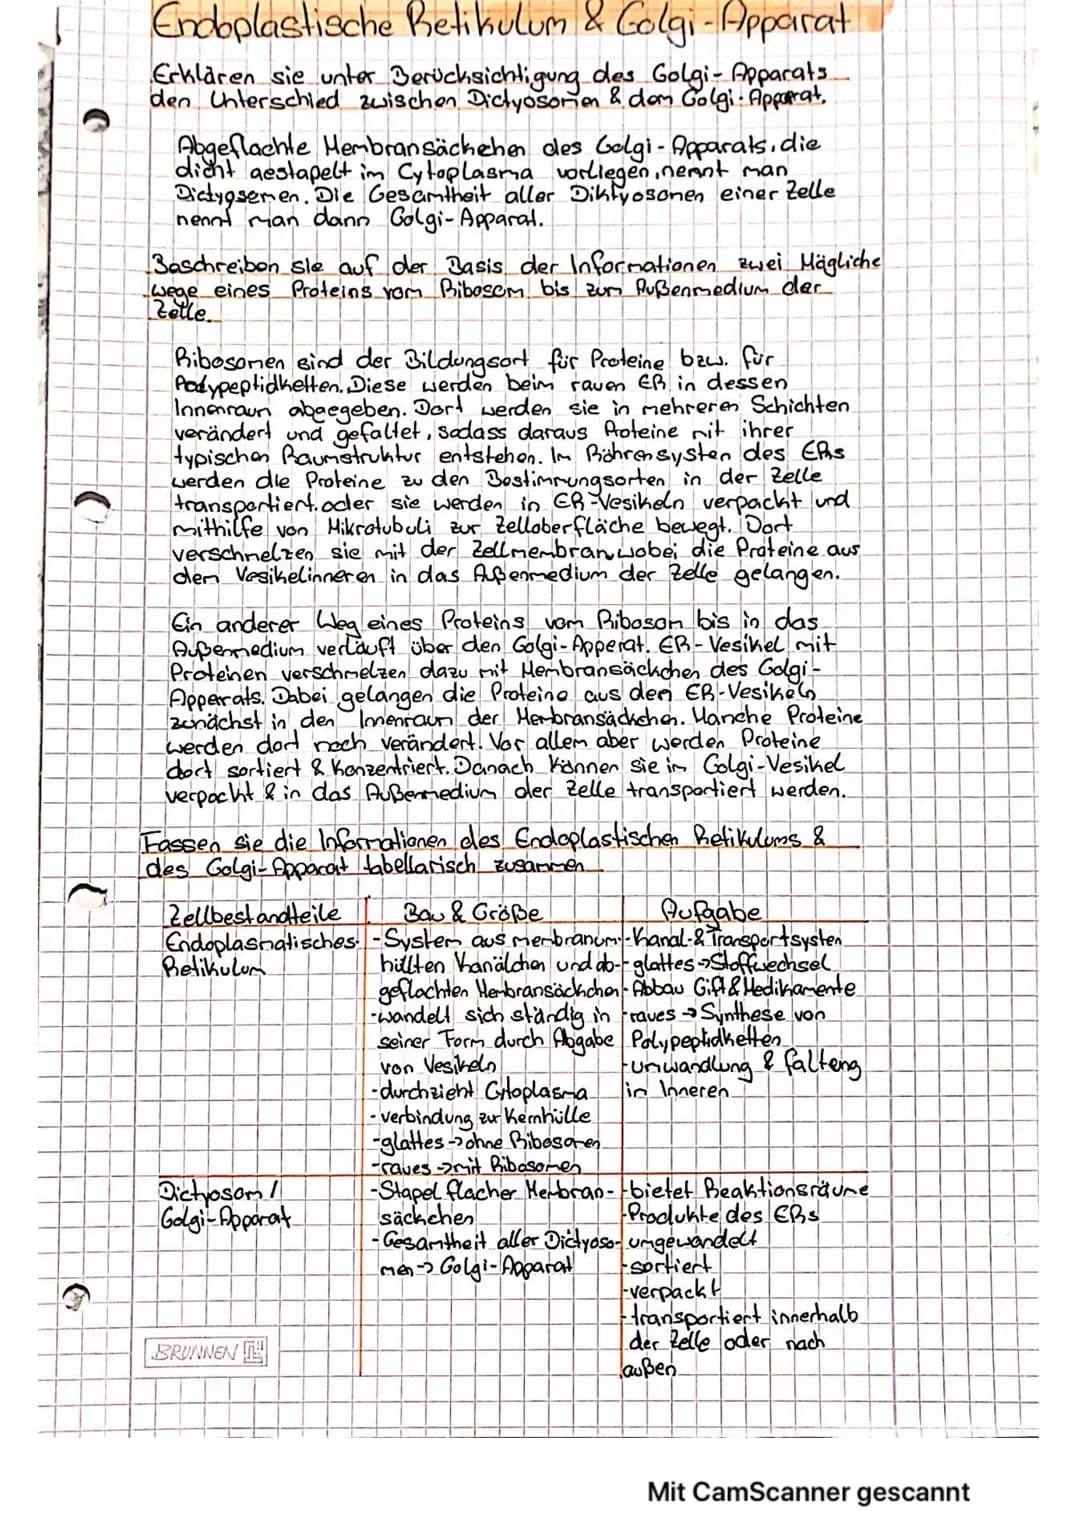 Endoplastische Retikulum & Golgi-Apparat
Erklären sie unter Berücksichtigung des Golgi-Apparats
den Unterschied zwischen Dictyosomen & dem Golgi-Apparat.
Abgeflachte Membransäckchen des Golgi-Apparats, die
dicht gestapelt im Cytoplasma vorliegen, nennt man
Dictyosemen. Die Gesamtheit aller Diktyosonen einer Zelle
nennt man dann Golgi-Apparat.
Beschreiben sie auf der Basis der Informationen zwei Mögliche
wege eines Proteins vom Ribosom bis zum Außenmedium der
Zelle.
Ribosomen sind der Bildungsort für Proteine bzw. für
Polypeptidketten. Diese werden beim rauen ER in dessen
Innenraum abgegeben. Dort werden sie in mehreren Schichten
verändert und gefaltet, sodass daraus Proteine mit ihrer
typischen Raumstruktur entstehen. Im Röhrensystem des ERs
werden die Proteine zu den Bestimmungsorten in der Zelle
transportiert. oder sie werden in ER-Vesikeln verpackt und
mithilfe von Mikrotubuli zur Zelloberfläche bewegt. Dort
verschmelzen sie mit der Zellmembran, wobei die Proteine aus
dem Vesikelinneren in das Außenmedium der Zelle gelangen.
Ein anderer Weg eines Proteins vom Ribosom bis in das
Außenmedium verläuft über den Golgi-Apperat. ER-Vesikel mit
Proteinen verschmelzen dazu mit Membransäckchen des Golgi-
Apperats. Dabei gelangen die Proteine aus den ER-Vesikeln
zunächst in den Innenraum der Membransäckchen. Manche Proteine
werden dort noch verändert. Vor allem aber werden Proteine
dort sortiert & Konzentriert. Danach können sie in Golgi-Vesikel
verpackt & in das Außenmedium der Zelle transportiert werden.
Fassen sie die Informationen des Endoplastischen Retikulums &
des Golgi-Apparat tabellarisch zusammen
Zellbestandteile Bau & Größe Aufgabe
Endoplasmatisches -System aus membranum- -Kanal-& Transportsystem
Retikulum hüllten Kanälchen und ab- -glattes→Stoffwechsel
geflachten Membransäckchen -Abbau Gift & Medikamente
-wandelt sich ständig in -raues → Synthese von
seiner Form durch Abgabe Polypeptidketten
von Vesikeln -umwandlung & falteng
-durchzieht Cytoplasma in Inneren
-verbindung zur Kernhülle
-glattes → ohne Ribosomen
-raues → mit Ribosomen
Dictyosom / -Stapel flacher Membran- -bietet Reaktionsräume
Golgi-Apparat säckchen -Produkte des ERs
-Gesamtheit aller Dictyoso- umgewandelt
men → Golgi-Apparat -sortiert
-verpackt
-transportiert innerhalb
der Zelle oder nach
außen
BRUNNEN
Mit CamScanner gescannt